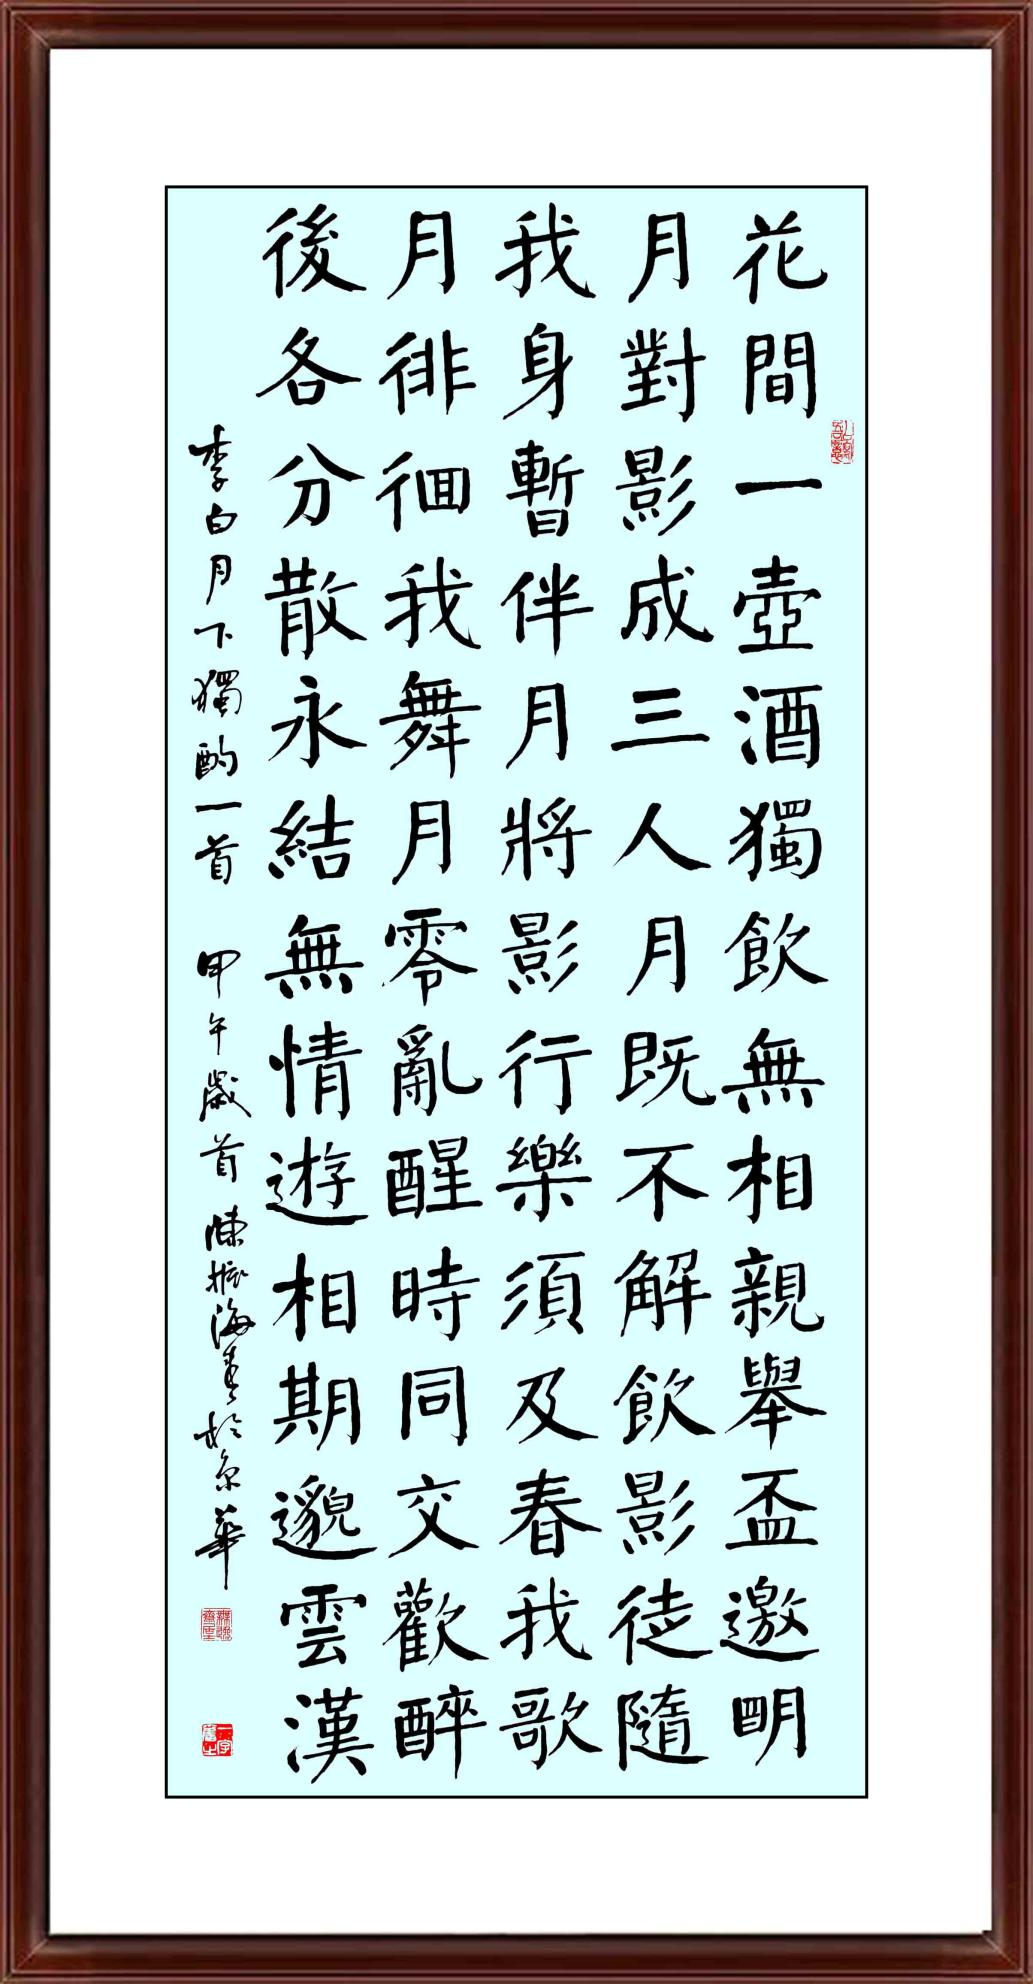 花間一壺酒獨飲無相親舉盃邀明
月對影成三人月既不解飲影徒隨
我身暫伴月將影行樂須及春我歌
月徘徊我舞月零亂醒時同交歡醉
後各分散永結無情遊相期邈雲漢
李白月下獨酌一首 甲午歲首 陳振海書於京華